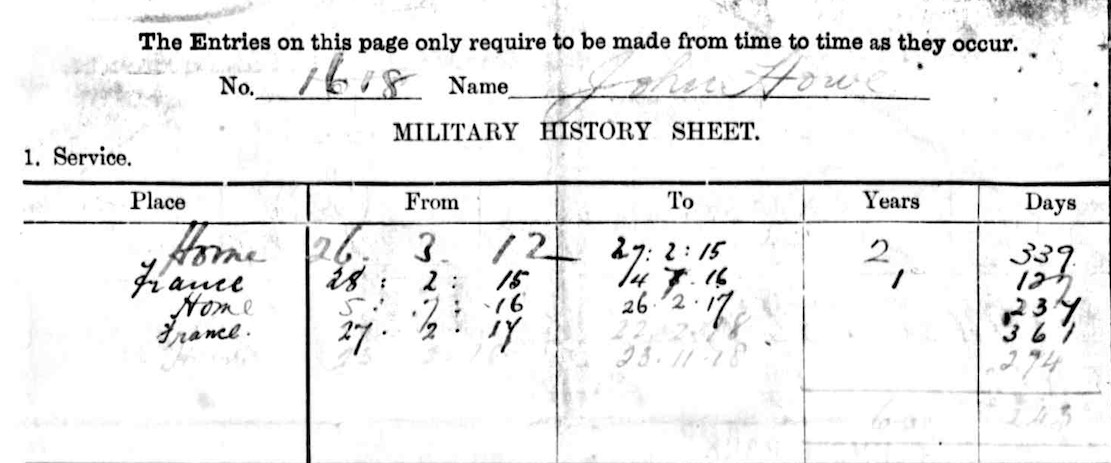 The Entries on this page only require to be made from time to time as they occur.
No. 1618 Name John Howe
MILITARY HISTORY SHEET.
1. Service.
Place From To Years Days
Home 26. 3. 12 27:2:15 2 339
France 28: 2: 15 14 7.16 1 127
Home 5: .7: .16 26.2.17 237
France. 27. 2. 17 22.2.18 361
23 2 18 23.11.18 274
6 243